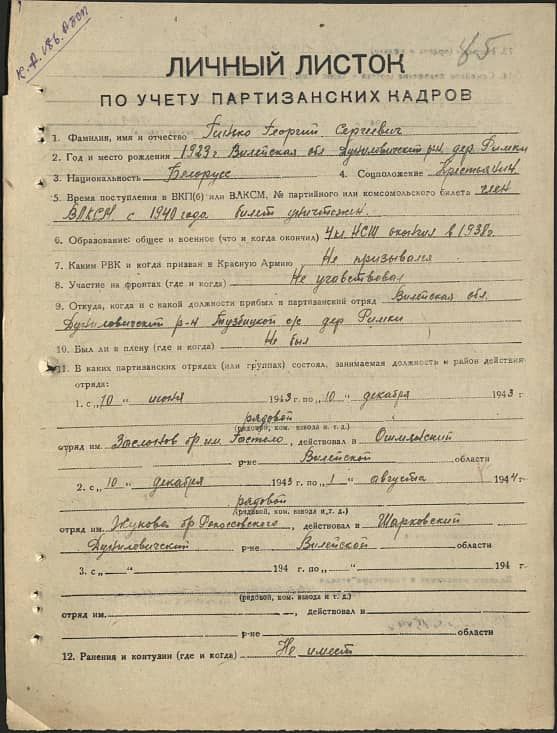 К. А. 186. АБОП
85
ЛИЧНЫЙ ЛИСТОК
ПО УЧЕТУ ПАРТИЗАНСКИХ КАДРОВ
1. Фамилия, имя и отчество Гинько Георгий Сергеевич
2. Год и место рождения 1923 г Вилейская обл Дуниловичский р-н дер. Римки
3. Национальность Белорусс 4. Соцположение Крестьянин
5. Время поступления в ВКП(б) или ВЛКСМ, № партийного или комсомольского билета член
ВЛКСМ с 1940 года. билет уничтожен.
6. Образование: общее и военное (что и когда окончил) 4 кл НСШ окончил в 1938г.
7. Каким РВК и когда призван в Красную Армию Не призывался
8. Участие на фронтах (где и когда) Не участвовал
9. Откуда, когда и с какой должности прибыл в партизанский отряд Вилейская обл.
Дуниловичский р-н с/с дер Римки
10. Был ли в плену (где и когда) Не был
11. В каких партизанских отрядах (или группах) состоял, занимаемая должность и район действия
отряда:
1. с „10 " июня 1943 г. по „10 " декабря 1943 г
рядовой
(рядовой, ком. взвода и т. д.)
отряд им. Заслонов бр. им. Гастело, действовал в Ошмянский
р-не Вилейской области
2. с „10 " декабря 1943 г. по „1 " августа 1944 г.
рядовой
(рядовой, ком. взвода и т. д.)
отряд им. Жукова бр Рокоссовского, действовал в Шарковский
Дуниловичский р-не Вилейской области
3. с „ " 194 г. по „ " 194 г.
(рядовой, ком. взвода и т. д.)
отряд им. , действовал в
р-не области
12. Ранения и контузии (где и когда) Не имеет